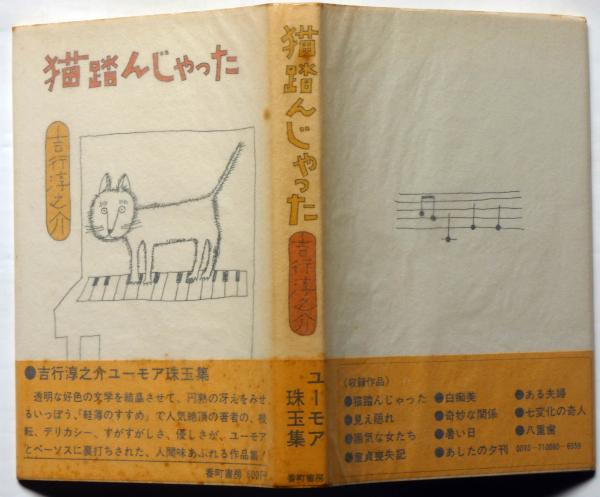 猫踏んじゃった
吉行淳之介
●吉行淳之介ユーモア珠玉集
透明な好色の文学を結晶させて、円熟の冴えをみせ
るいっぽう、「軽薄のすすめ」で人気絶頂の著者の、機
転、デリカシー、すがすがしさ、優しさが、ユーモア
とペーソスに裏打ちされた、人間味あふれる作品集!
番町書房 600円
猫踏んじゃった
吉行淳之介
ユーモア
珠玉集
番町書房
〈収録作品〉
●猫踏んじゃった
●見え隠れ
●陽気な女たち
●童貞喪失記
●白痴美
●奇妙な関係
●暑い日
●あしたの夕刊
●ある夫婦
●七変化の奇人
●八重歯
0093-710080-6959